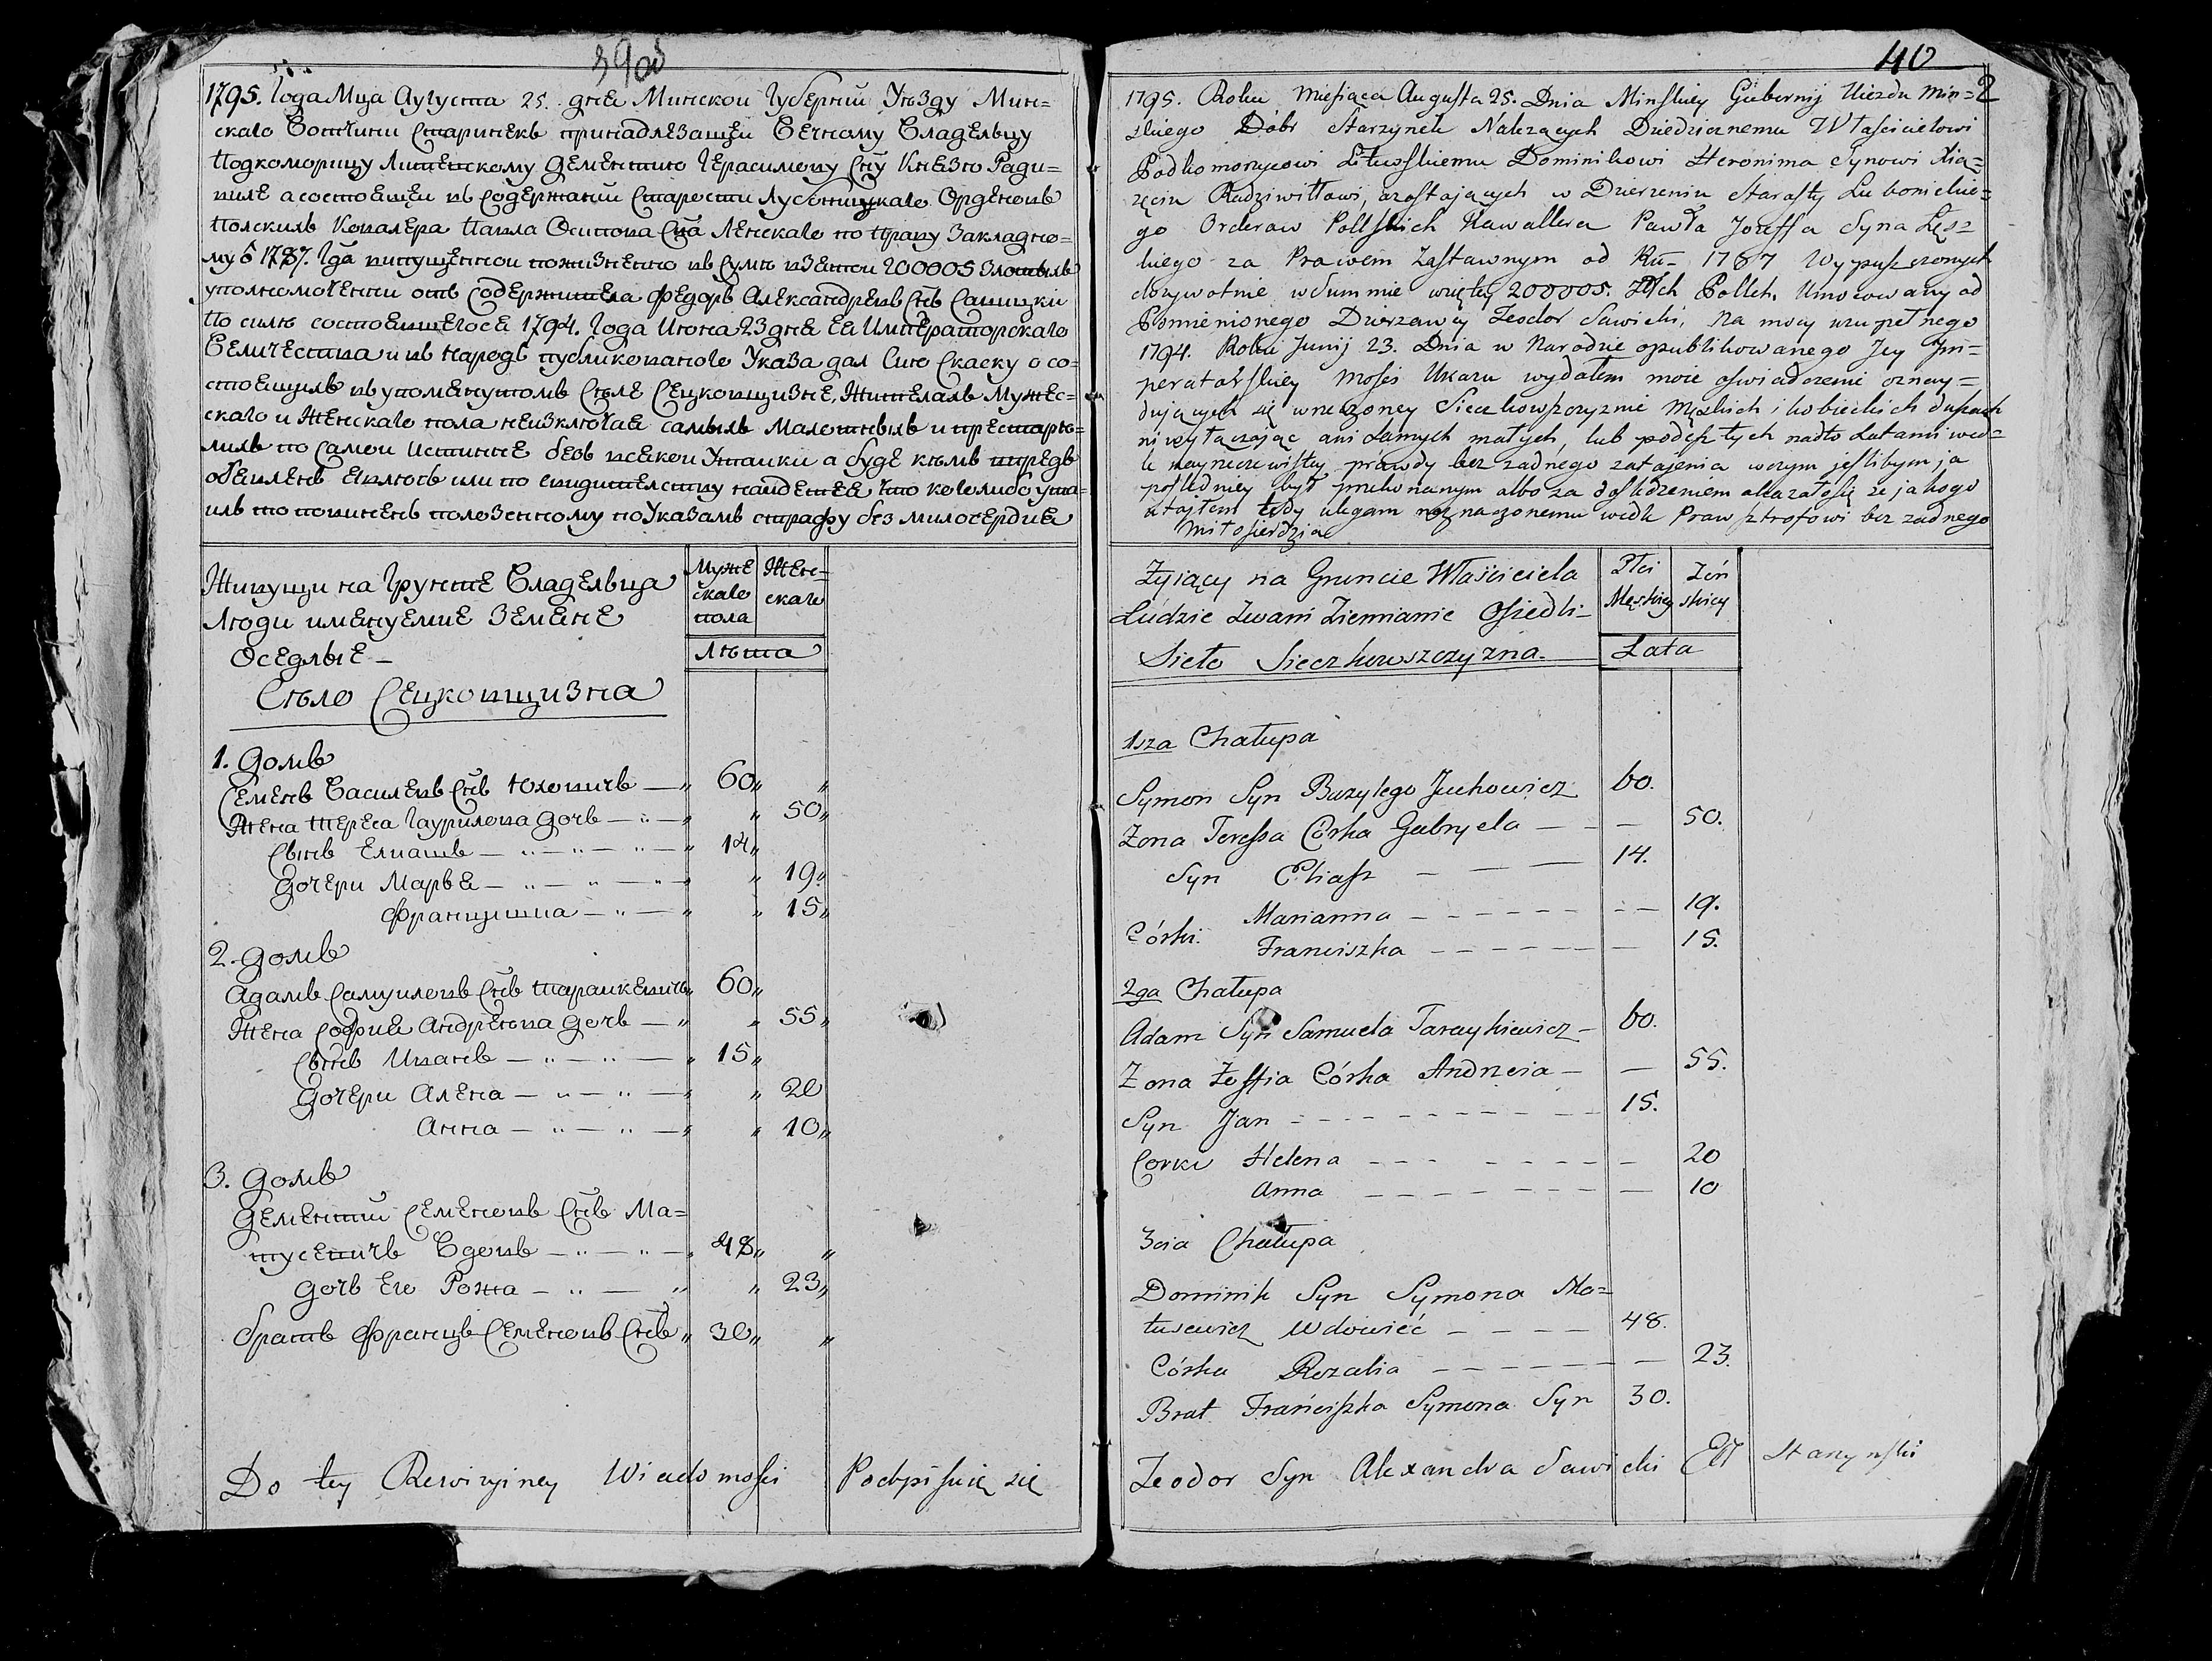 39об
1795. Года Мца Аугуста 25. дня Минской Губерний Уѣзду Мин=
скаго Вотчини Старинекъ принадлежащей Вечному Владельцу
Подкоморицу Литевскому Дементию Герасимову Сну Князю Ради=
виле а состоящеи въ Содержаний Старости Лубоницкаго Орденовъ
Полскихъ Ковалера Павла Осипова Сна Ленскаго по Праву Закладно=
му 1787. Года випущенной пожизненно въ Сумѣ взятой 200005 Злотыхъ
уполномоченни отъ Содержителя Федоръ Александревъ Снъ Савицки
По силѣ состоявшегося 1794. Года Июня 23 дня Ея Императорскаго
Величества и въ Народъ публикованого Указа дал Сию Скаску о со=
стоящихъ въ упомянутомъ Сѣле Сецковщизне, Жителахъ Мужес=
скаго и Женскаго пола неизключая самыхъ Малетныхъ и престарѣ=
лихъ по Самой Истинне безъ всякой Утайки а буде кѣмъ впредь
обявленъ явлюсь или по свидителству найдется что кого либо ута=
илъ то повиненъ положенному по Указамъ страфу без милосердия
Живущи на Грунте Владельца
Люди именуемие Земяне
Оседлые –
Муже
скаго
пола
Жен=
скаго
Лѣта
Сѣло Сецковщизна
1. Домъ
Семенъ Василевъ Снъ Юховичъ — „ 60 „ „
Жена Тереса Гаурилова Дочь — „ — „ „ 50 „
Сынъ Елиашъ — „ — „ — „ 14 „
Дочери Марья — „ — „ — „ „ 19 „
Францишка — „ — „ „ 15 „
2. Домъ
Адамъ Самуилевъ Снъ Тарайкевичъ „ 60 „
Жена София Андреева Дочь — „ „ 55 „
Сынъ Иванъ — „ — „ — „ 15 „
Дочери Алена — „ — „ — „ „ 20
Анна — „ — „ — „ „ 10 „
3. Домъ
Дементий Семеновъ Снъ Ма=
тусевичъ Вдовъ — „ — „ — „ 48 „ „
Дочь Его Рожа — „ — „ „ 23 „
Братъ Францъ Семеновъ Снъ „ 30 „ „
Do tey Rewizyiney Wiadomości Podpisuię się
40
2
1795. Roku Miesiąca Augusta 25. Dnia Minskiey Gubernij Uiezdu Min=
skiego Dobr Starzynek Nalezących Dziedzicznemu Właścicielowi
Podkomorycowi Litewskiemu Dominikowi Heronima Synowi Xią=
zęciu Radziwiłłowi, azostaiących w Dzierzeniu Starosty Lubonickie=
go Orderow Pollskich Kawallera Pawła Jozeffa Syna Łęs=
kiego za Prawem Zastawnym od Ru= 1787 Wypuszczonych
dozywotnie w Summie wziętey 200005. Złłch Pollch. Umocowany od
Pomienionego Dzierzawcy Teodor Sawicki, na mocy zupełnego
1794. Roku Junij 23. Dnia w Narodzie opublikowanego Jey Jm=
peratorskiey Mości Ukazu wydałem moie oswiadczenie oznay=
dujących się w rzeczoney Sieczkowszczyznie Męzkich i kobieckich duszach
ni wyłączając ani samych małych, lub podeszłych nadto Latami wed=
le nayrzeczewistey prawdy bez zadnego zatajenia w czym jeslibym ja
poslednieÿ był przekonanym albo za dosledzeniem okazałosię ze jakogo
utajłem tedy ulegam naznaczonemu wedle Praw sztrofowi bez zadnego
Miłosierdzia
Zyiący na Gruncie Właściciela
Ludzie Zwani Ziemianie Osiedli–
Płci
Męskiey
Zeń
skiey
Sieło Sieczkowszczyzna.
Lata
1sza Chałupa
Symon Syn Bazylego Juchowicz 60.
Zona Teressa Córka Gabryela — — — 50.
Syn Eliasz — — — 14.
Córki. Marianna — — — — — — 19.
Franciszka — — — — — — 15.
2ga Chałupa
Adam Syn Samuela Taraykiewicz — 60.
Zona Zoffia Córka Andrzeia — — 55.
Syn Jan — — — — — — 15.
Corki Helena — — — — — — — 20
Anna — — — — — — — 10
3cia Chałupa
Dominik Syn Symona Ma=
tusewicz Wdowieć — — — — 48.
Córka Rozalia — — — — — — 23.
Brat Franciszka Symona Syn 30.
Teodor Syn Alexandra Sawicki